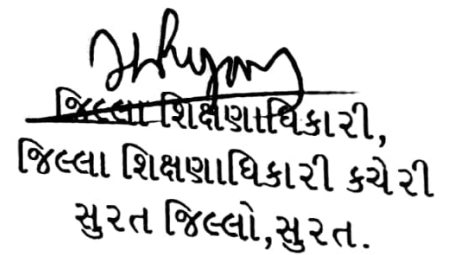 જિલ્લા શિક્ષણાધિકારી,
જિલ્લા શિક્ષણાધિકારી કચેરી
સુરત જિલ્લો,સુરત.